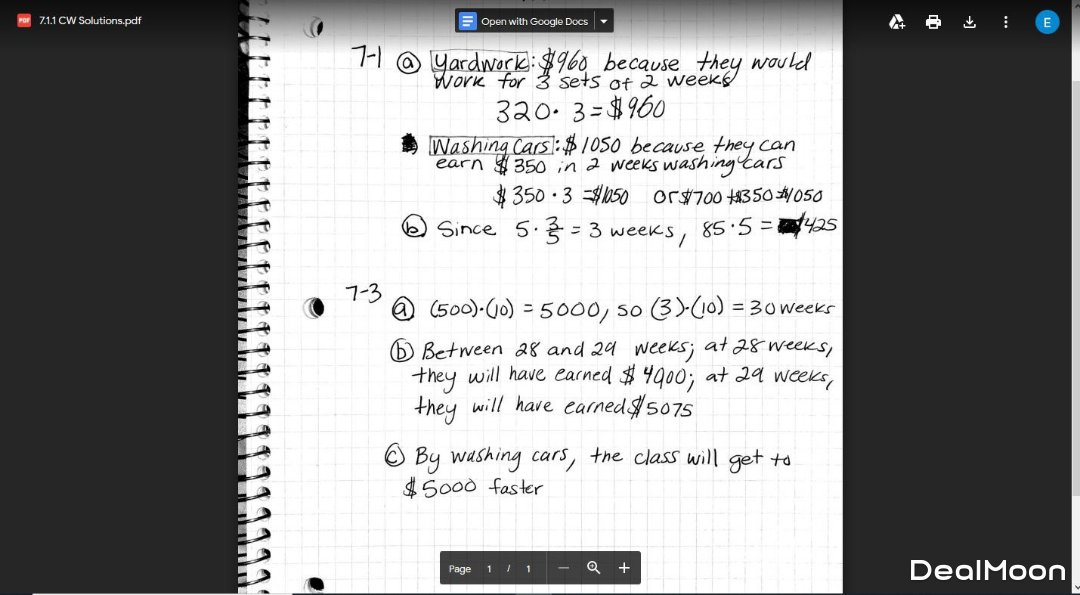 PDF 7.1.1 CW Solutions.pdf
Open with Google Docs
E
7-1 a Yardwork: $960 because they would
work for 3 sets of 2 weeks
320 · 3 = $960
Washing Cars: $1050 because they can
earn $350 in 2 weeks washing cars
$350 · 3 = $1050 or $700 + $350 = $1050
b Since 5 · 3/5 = 3 weeks, 85 · 5 = $425
7-3
a (500)·(10) = 5000, so (3)·(10) = 30 weeks
b Between 28 and 29 weeks; at 28 weeks,
they will have earned $4900; at 29 weeks,
they will have earned $5075
c By washing cars, the class will get to
$5000 faster
Page 1 / 1
DealMoon